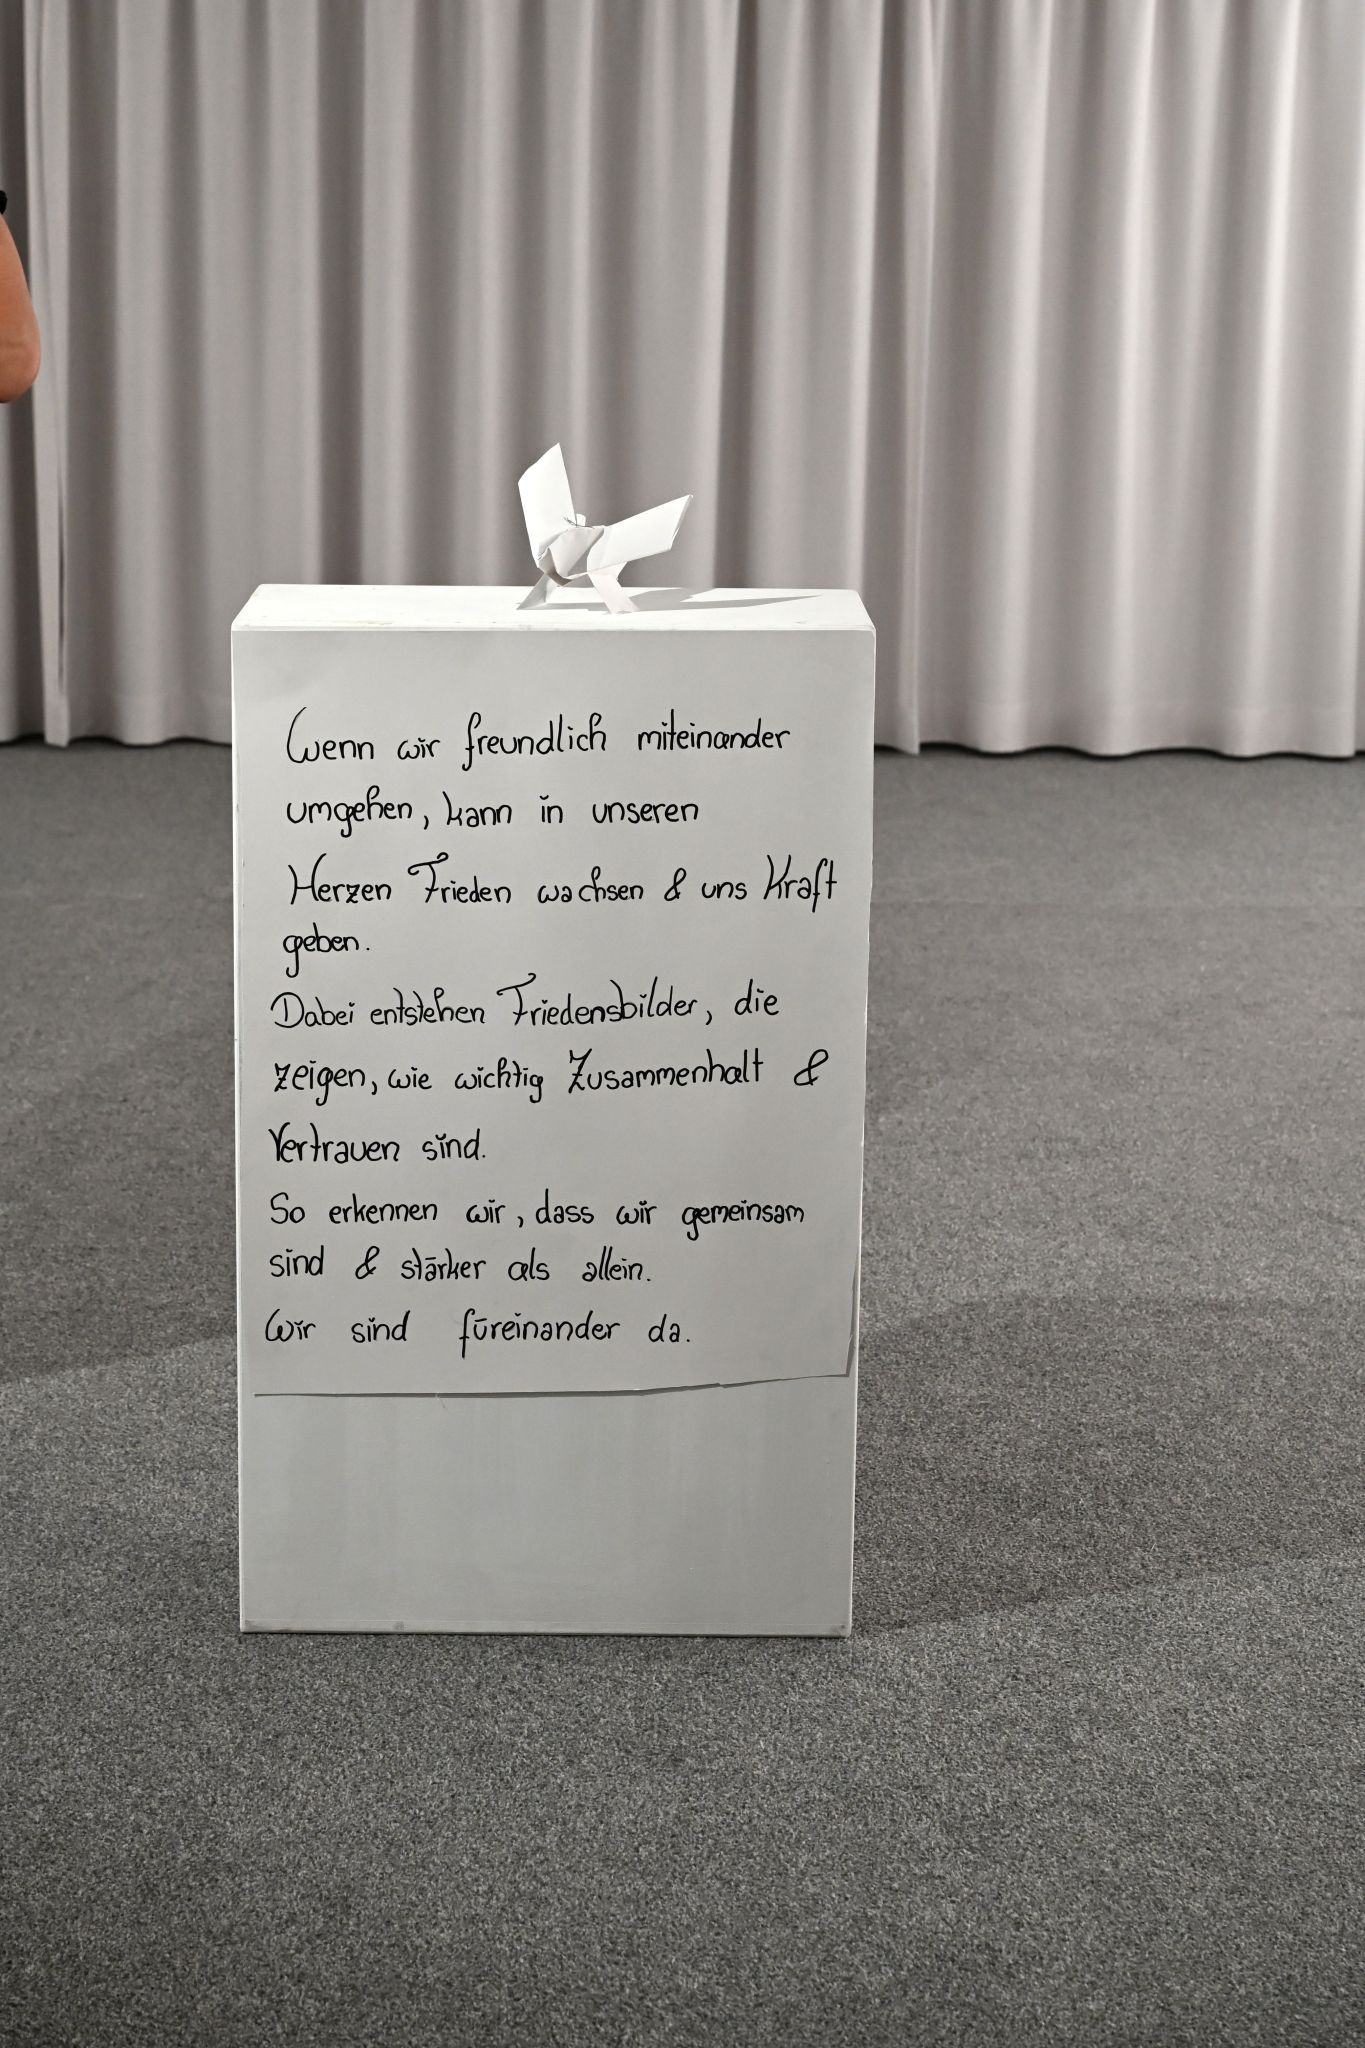 Wenn wir freundlich miteinander
umgehen, kann in unseren
Herzen Frieden wachsen & uns Kraft
geben.
Dabei entstehen Friedensbilder, die
zeigen, wie wichtig Zusammenhalt &
Vertrauen sind.
So erkennen wir, dass wir gemeinsam
sind & stärker als allein.
Wir sind füreinander da.